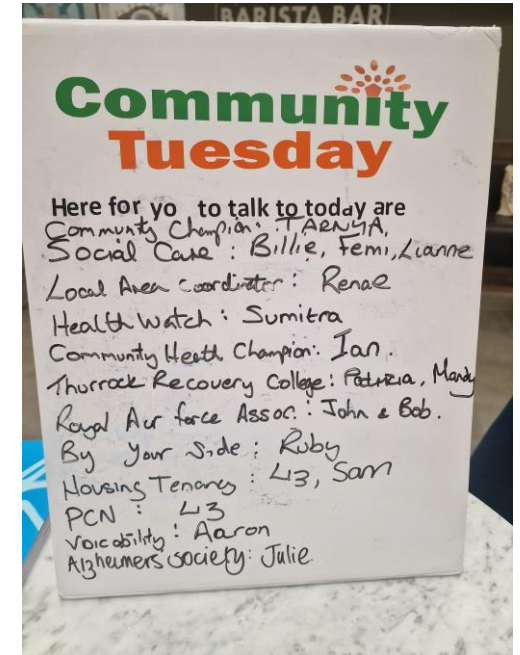 BARISTA BAR
Community
Tuesday
Here for yo to talk to today are
Community Champion: TARNYA,
Social Care : Billie, Femi, Lianne
Local Area Coordinator : Renae
Health Watch : Sumitra
Community Heath Champion: Ian.
Thurrock Recovery College: Patrizia, Mandy
Royal Air force Assoc. : John & Bob.
By Your Side : Ruby
Housing Tenancy : Liz, Sam
PCN : Liz
Voicability : Aaron
Alzheimers society: Julie.